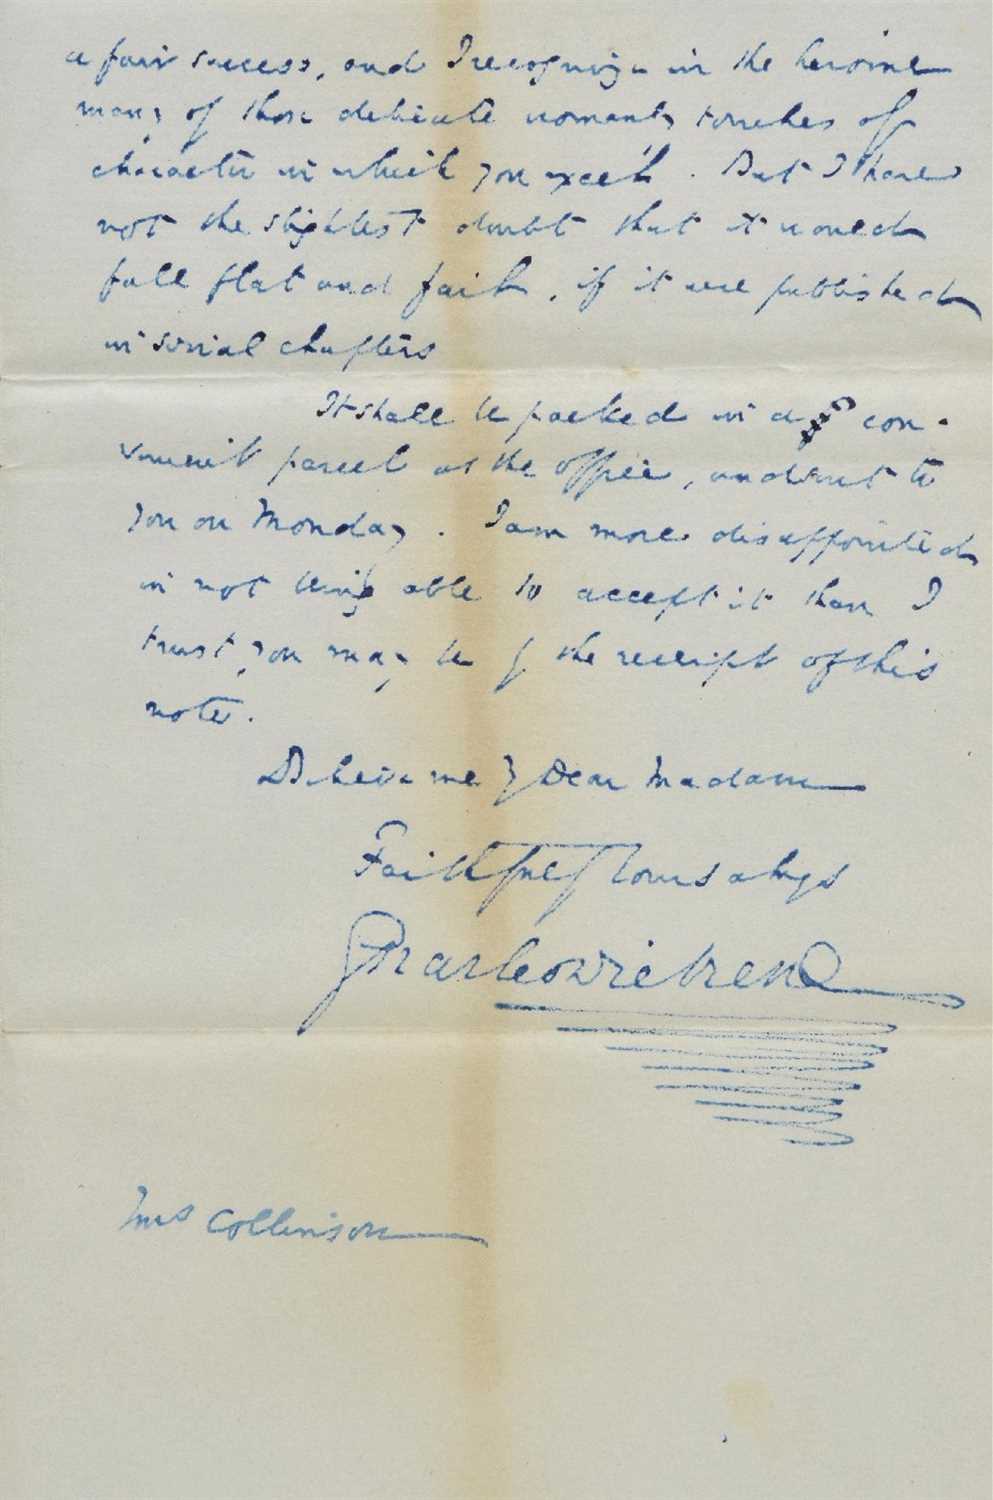 a fair success, and I recognize in the heroine
many of those delicate womanly touches of
character in which you excel. But I have
not the slightest doubt that it would
fall flat and fail, if it were published
in serial chapters
It shall be packed in a con-
venient parcel at the office, and sent to
you on Monday. I am more disappointed
in not being able to accept it than I
trust you may be by the receipt of this
note.
Believe me Dear Madam
Faithfully Yours always
Charles Dickens
Mrs Collinson